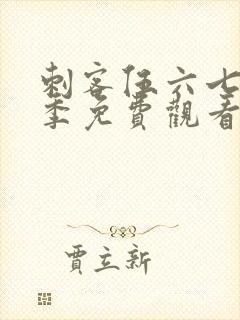 刺客伍六七
季免費觀看
賈立新